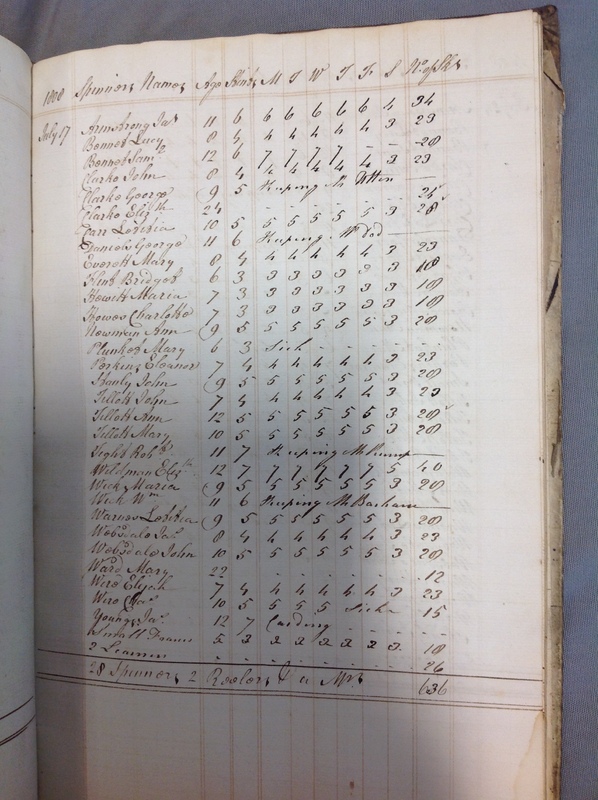 1808 Spinners Names Age Stints M T W T F S No of Sks
July 17 Armstrong Jas 11 6 6 6 6 6 6 4 34
Bennet Lucy 8 4 4 4 4 4 4 3 23
Bennet Saml 12 6 7 7 7 7 - - 28
Clarke John 8 4 4 4 4 4 4 3 23
Clarke George 9 5 Keeping Mr
Clarke Elizth 24 - - - - - - 24
Carr Letitia 10 5 5 5 5 5 5 3 28
Daniels George 11 6 Keeping
Everett Mary 8 4 4 4 4 4 4 3 23
Bridget 6 3 3 3 3 3 3 3 18
Hewitt Maria 7 3 3 3 3 3 3 3 18
Howes Charlotte 7 3 3 3 3 3 3 3 18
Newman Ann 9 5 5 5 5 5 5 3 28
Plunket Mary 6 3 Sick - - - - - -
Perkins Eleanor 7 4 4 4 4 4 4 3 23
Hanly John 9 5 5 5 5 5 5 3 28
Tillott John 7 4 4 4 4 4 4 3 23
Tillott Ann 12 5 5 5 5 5 5 3 28
Tillott Mary 10 5 5 5 5 5 5 3 28
Robt 11 7 Keeping Mr
Wildman Elizth 12 7 7 7 7 7 7 5 40
Wick Maria 9 5 5 5 5 5 5 3 28
Wick Wm 11 6 Keeping Mr Basham
Warnes Letitia 9 5 5 5 5 5 5 3 28
Websdale Jas 8 4 4 4 4 4 4 3 23
Websdale John 10 5 5 5 5 5 5 3 28
Ward Mary 22 - - - - - - 12
Elijah 7 4 4 4 4 4 4 3 23
10 5 5 5 5 Sick 15
Young Jas 12 7 Carding - - - -
Small Francis 5 3 3 3 3 3 3 3 18
2 Learners - - - - - - 26
28 Spinners 2 Reelers & a Mrs 636